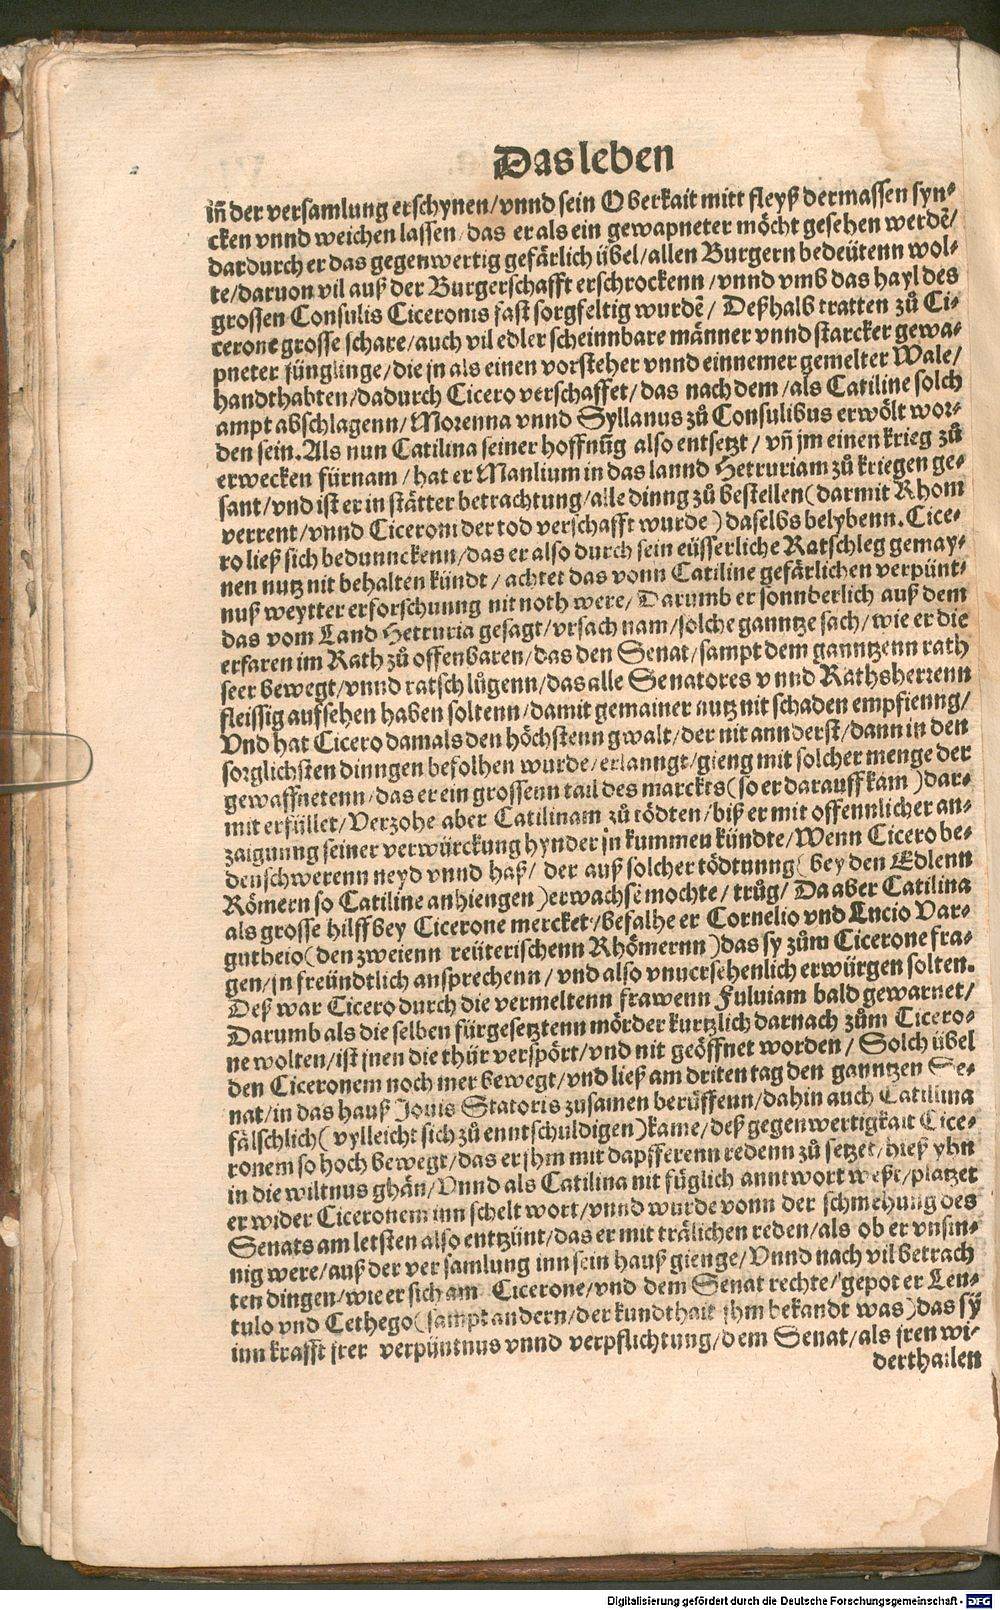 Das leben
in̄ der versamlung erschynen/vnnd sein Oberkait mitt fleyß dermassen syn⸗
cken vnnd weichen lassen/das er als ein gewapneter möcht gesehen werdē/
dardurch er das gegenwertig gefärlich übel/allen Burgern bedeütenn wol⸗
te/daruon vil auß der Burgerschafft erschrockenn/vnnd vmb das hayl des
grossen Consulis Ciceronis fast sorgfeltig wurdē/ Deßhalb tratten zů Ci⸗
cerone grosse schare/auch vil edler scheinnbare männer vnnd starcker gewa⸗
pneter jünglinge/die jn als einen vorsteher vnnd einnemer gemelter Wale/
handthabten/dadurch Cicero verschaffet/das nach dem/als Catiline solch
ampt abschlagenn/Morenna vnnd Syllanus zů Consulibus erwölt wor⸗
den sein. Als nun Catilina seiner hoffnūg also entsetzt/ vn̄ jm einen krieg zů
erwecken fürnam/hat er Manlium in das lannd Hetruriam zů kriegen ge⸗
sant/vnd ist er in stätter betrachtung/alle dinng zů bestellen(darmit Rhom
verrent/vnnd Ciceroni der tod verschafft wurde)daselbs belybenn. Cice⸗
ro ließ sich bedunnckenn/das er also durch sein eüsserliche Ratschleg gemay⸗
nen nutz nit behalten kündt/ achtet das vonn Catiline gefärlichen verpünt⸗
nuß weytter erforschunng nit noth were/Darumb er sonnberlich auß dem
das vom Land Hetruria gesagt/vrsach nam/solche ganntze sach/wie er die
erfaren im Rath zů offenbaren/das den Senat/sampt dem ganntzenn rath
seer bewegt/vnnd ratschlůgenn/das alle Senatores vnnd Rathsherrenn
fleissig aufsehen haben soltenn/damit gemainer nutz nit schaden empfienng/
Vnd hat Cicero damals den höchstenn gwalt/der nit annderst/dann in den
sorglichsten dinngen befolhen wurde/erlanngt/gieng mit solcher menge der
gewaffnetenn/das er ein grossenn tail des marckts(so er darauff kam)dar⸗
mit erfüllet/Verzohe aber Catilinam zů tödten/biß er mit offennlicher an⸗
zaigunng seiner verwürckung hynder jn kummen kündte/Wenn Cicero be⸗
den schwerenn neyd vnnd haß/ der auß solcher tödtunng(bey den Edlenn
Römern so Catiline anhiengen)erwachsē mochte/ trůg/ Da aber Catilina
als grosse hilff bey Cicerone mercket/befalhe er Cornelio vnd Lucio Var⸗
gutheio(den zweienn reüterischenn Rhömernn)das sy zům Cicerone fra⸗
gen/jn freündtlich ansprechenn/vnd also vnuersehenlich erwürgen solten.
Deß war Cicero durch die vermeltenn frawenn Fuluiam bald gewarnet/
Darumb als die selben fürgesetztenn mörder kurtzlich darnach zům Cicero⸗
ne wolten/ist jnen die thür verspört/vnd nit geöffnet worden/ Solch übel
den Ciceronem noch mer bewegt/vnd ließ am driten tag den ganntzen Se⸗
nat/in das hauß Jouis Statoris zusamen berüffenn/dahin auch Catilina
fälschlich(vylleicht sich zů enntschuldigen)kame/deß gegenwertigkait Cice⸗
ronem so hoch bewegt/das er jhm mit dapfferenn redenn zů setzet/hieß yhn
in die wiltnus ghän/Vnnd als Catilina nit füglich anntwort weßt/platzet
er wider Ciceronem inn schelt wort/vnnd wurde vonn der schmehung des
Senats am letsten also entzünt/das er mit trälichen reden/als ob er vnsin⸗
nig were/auß der versamlung inn sein hauß gienge/Vnnd nach vil betrach
ten dingen/wie er sich am Cicerone/vnd dem Senat rechte/gepot er Len⸗
tulo vnd Cethego(sampt andern/der kundthait jhm bekandt was)das sy
inn krafft jrer verpüntnus vnnd verpflichtung/dem Senat/als jren wi⸗
derthailen
Digitalisierung gefördert durch die Deutsche Forschungsgemeinschaft - DFG